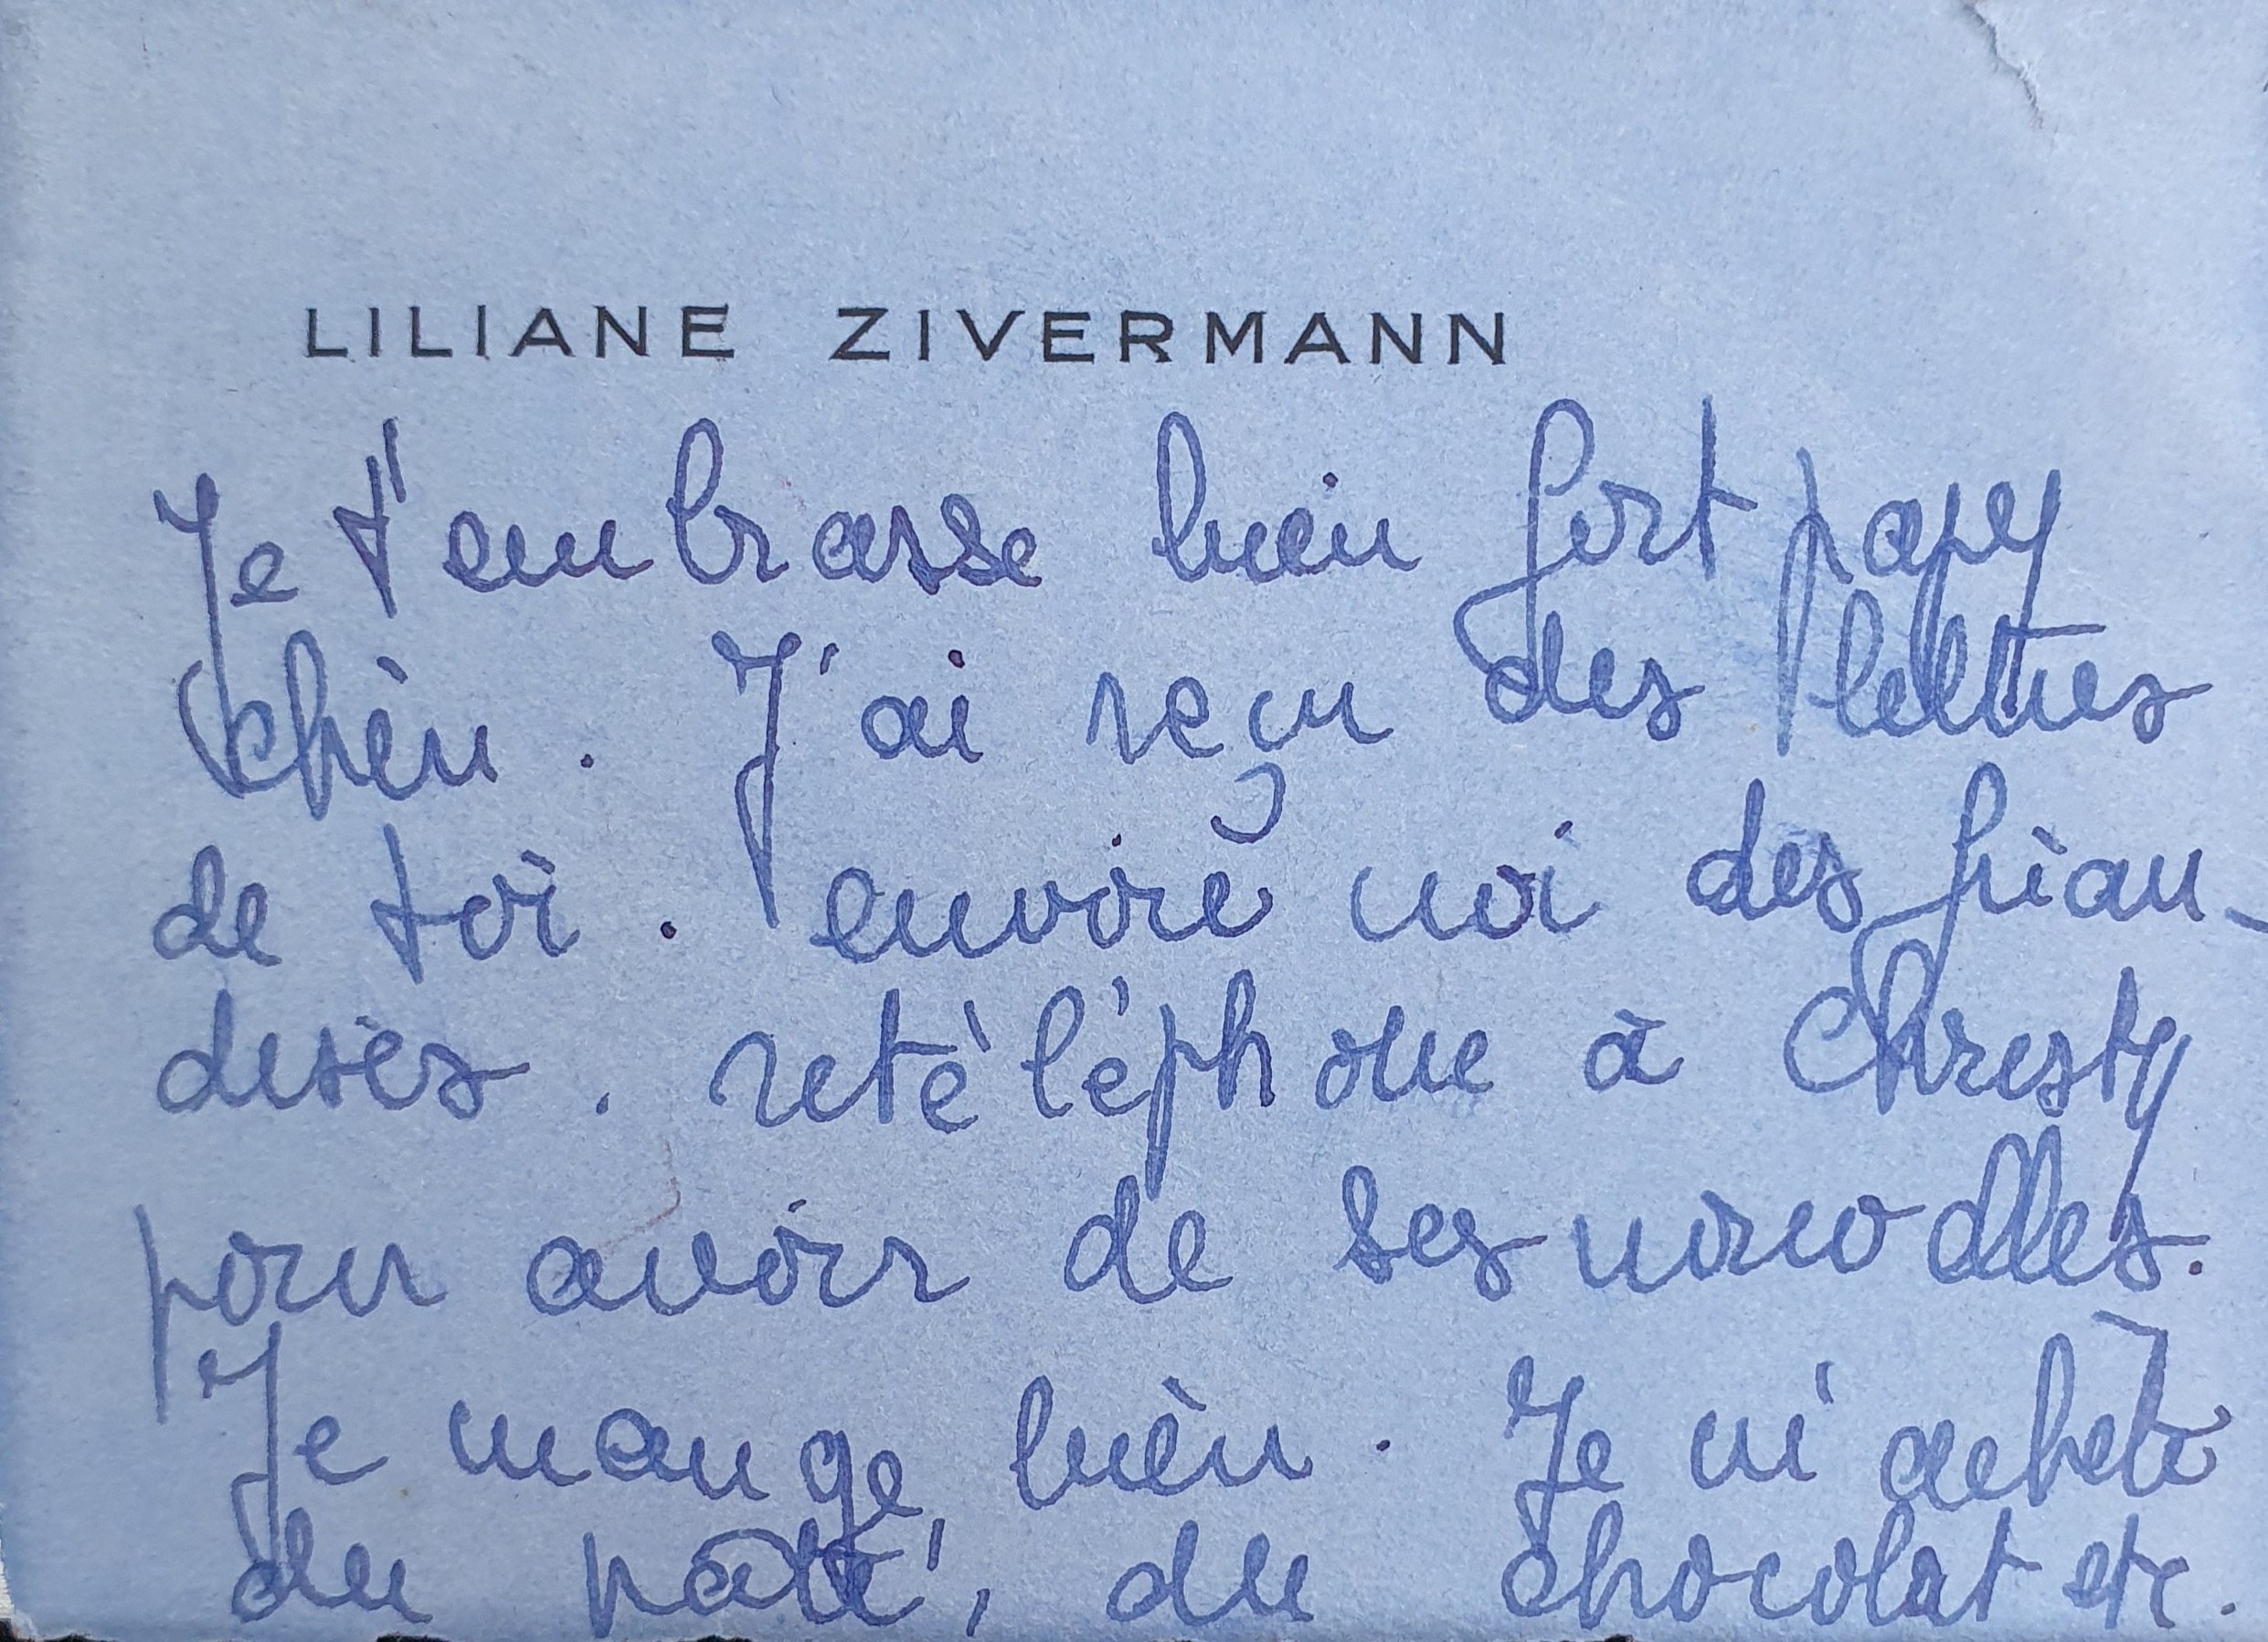 LILIANE ZIVERMANN
Je t'embrasse bien fort papy
chéri. J'ai reçu des lettres
de toi. envoie moi des frian-
dises. retéléphone à Christy
pour avoir de ses nouvelles.
Je mange bien. Je m'achète
du pâté, du chocolat etc.